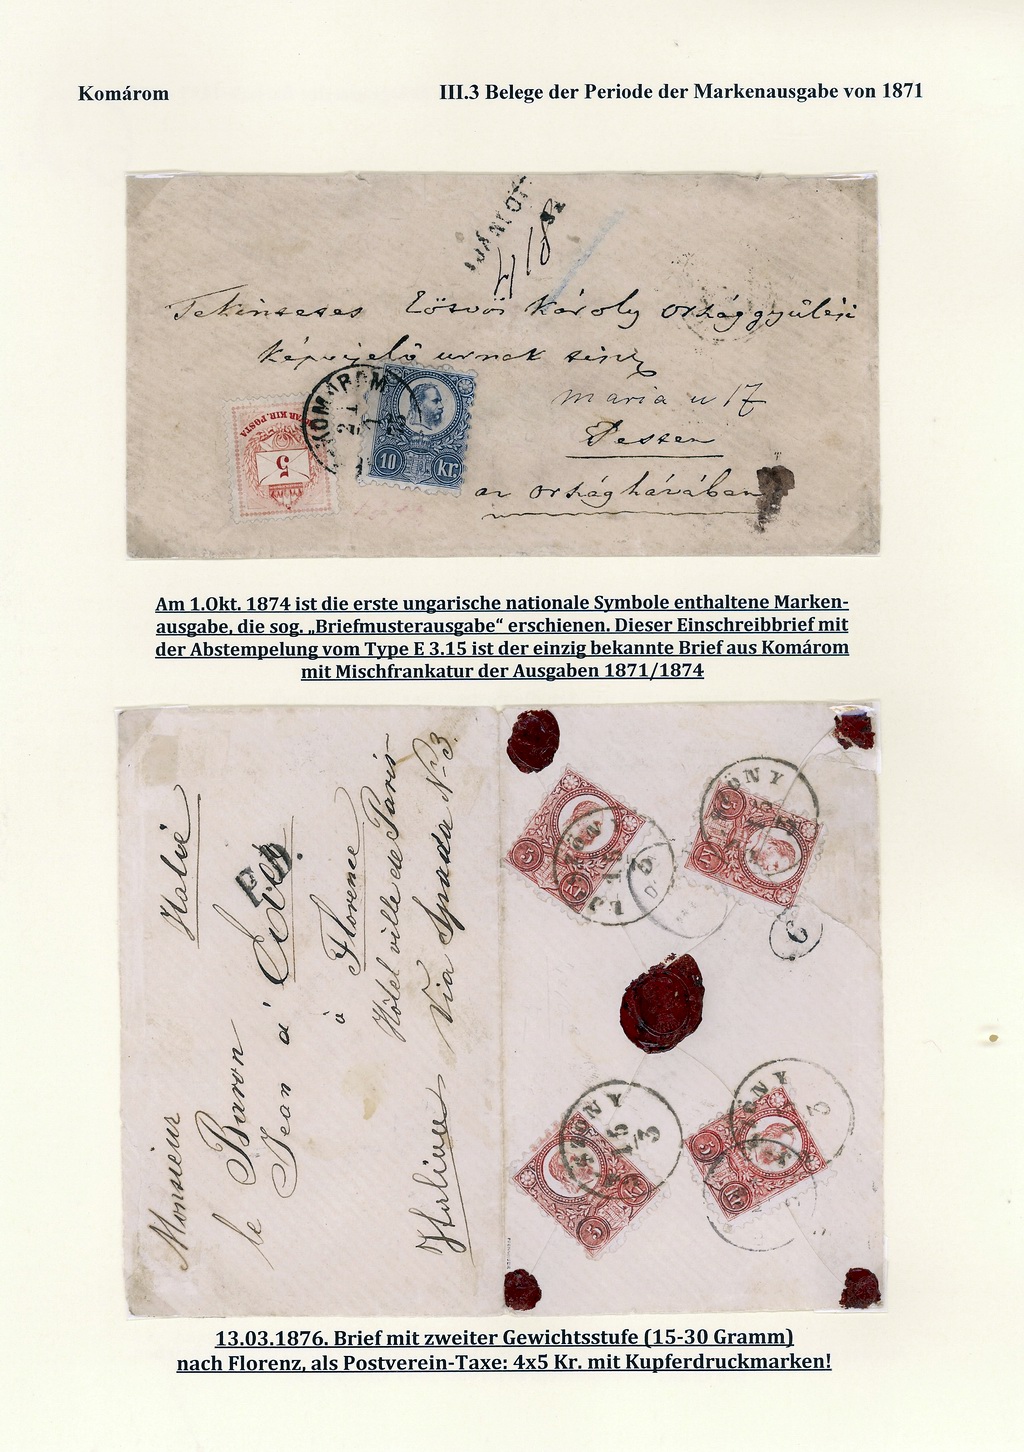 Komárom
III.3 Belege der Periode der Markenausgabe von 1871
AJÁNLOTT
418
Tekinteses Eötvös Károly országgyülési
képviselő urnak
Maria u 17
Pesten
az országházában
KOMÁROM
MAGYAR KIR. POSTA
5
10 Kr.
Am 1.Okt. 1874 ist die erste ungarische nationale Symbole enthaltene Marken-
ausgabe, die sog. „Briefmusterausgabe“ erschienen. Dieser Einschreibbrief mit
der Abstempelung vom Type E 3.15 ist der einzig bekannte Brief aus Komárom
mit Mischfrankatur der Ausgaben 1871/1874
Monsieur
le Baron
Jean d'
à
Florence
Hôtel ville de Paris
Via Spada No 3.
Italie
5 Kr
5 Kr
6
5 Kr
5 Kr
13.03.1876. Brief mit zweiter Gewichtsstufe (15-30 Gramm)
nach Florenz, als Postverein-Taxe: 4x5 Kr. mit Kupferdruckmarken!